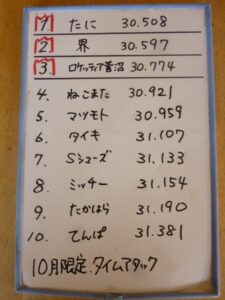 1. たに 30.508
2. 界 30.597
3. ロケッティア菅沼 30.774
4. ねこまた 30.921
5. マツモト 30.959
6. タイキ 31.107
7. Sシューズ 31.133
8. ミッチー 31.154
9. たかはら 31.190
10. てんぱ 31.381
10月限定.タイムアタック